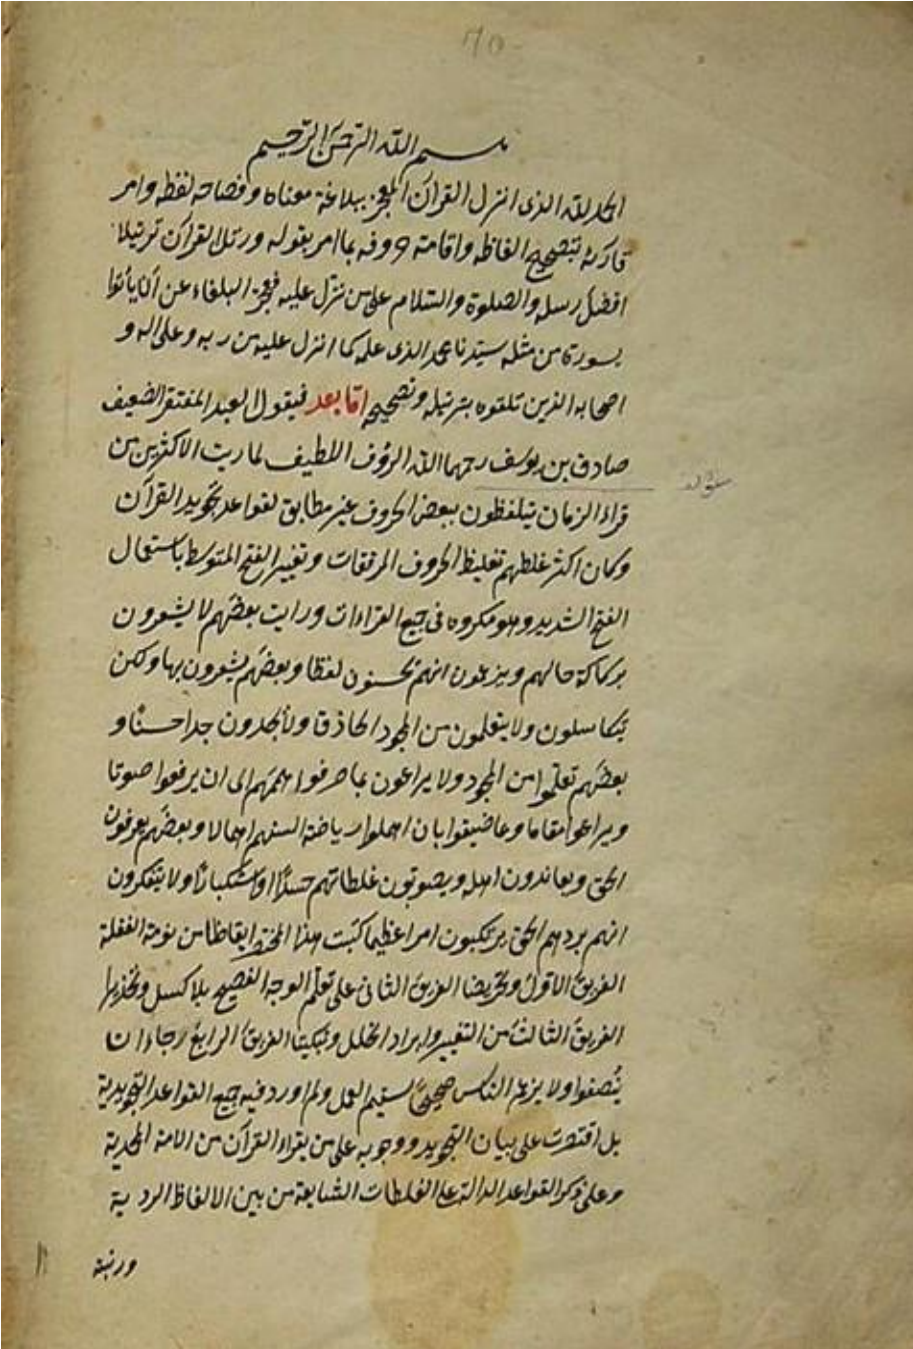 ٦٥
بسم الله الرحمن الرحيم
الحمد لله الذى انزل القرآن المعجز ببلاغة معناه وفصاحة لفظه وامر
قارئه بتصحيح الفاظه واقامة حروفه بما امر بقوله ورتل القرآن ترتيلا
افضل رسله والصلوة والسلام على من نزل عليه فعجز البلغاء عن ان يأتوا
بسورة من مثله سيدنا محمد الذى علمه كما انزل عليه من ربه وعلى اله و
اصحابه الذين تلقوه بترتيله وتصحيحه اما بعد فيقول العبد المفتقر الضعيف
صادق بن يوسف رحمهما الله الرؤف اللطيف لما ريت الاكثرين من
قراء الزمان يتلفظون ببعض الحروف غير مطابق لقواعد تجويد القرآن
وكان اكثر غلطهم تغليظ الحروف المرققات وتغيير الفتح المتوسط باستعمال
الفتح الشديد وهو مكروه فى جميع القراءات ورايت بعضهم لا يشعرون
بركاكة حالهم ويزعمون انهم يحسنون لفظا وبعضهم يشعرون بها ولكن
يتكاسلون ولا يتعلمون من المجود الحاذق ولا يجدون جدا حسنا و
بعضهم تعلموا من المجود ولا يراعون بما صرفوا همهم الى ان يرفعوا صوتا
ويراعوا مقاما وعاضيعوا بان اهملوا رياضة السنهم اهمالا وبعضهم يعرفون
الحق ويعاندون اهله ويصوبون غلطاتهم حسدا او استكبارا ولا يتفكرون
انهم بردهم الحق يرتكبون امرا عظيما كتبت هذا المختصر ايقاظا من نومة الغفلة
الفريق الاول وتحريضا الفريق الثانى على تعلم الوجه الفصيح بلا كسل وتحذيرا
الفريق الثالث من التغيير وايراد الخلل وتبكيتا الفريق الرابع رجاء ان
ينصفوا ولا يزعم الناس صحيحا سقيم العمل ولم اورد فيه جميع القواعد التجويدية
بل اقتصرت على بيان التجويد ووجوبه على من يقراء القرآن من الامة المحمدية
وعلى ذكر القواعد الدالة على الغلطات الشايعة من بين الالفاظ الردية
ورتبته